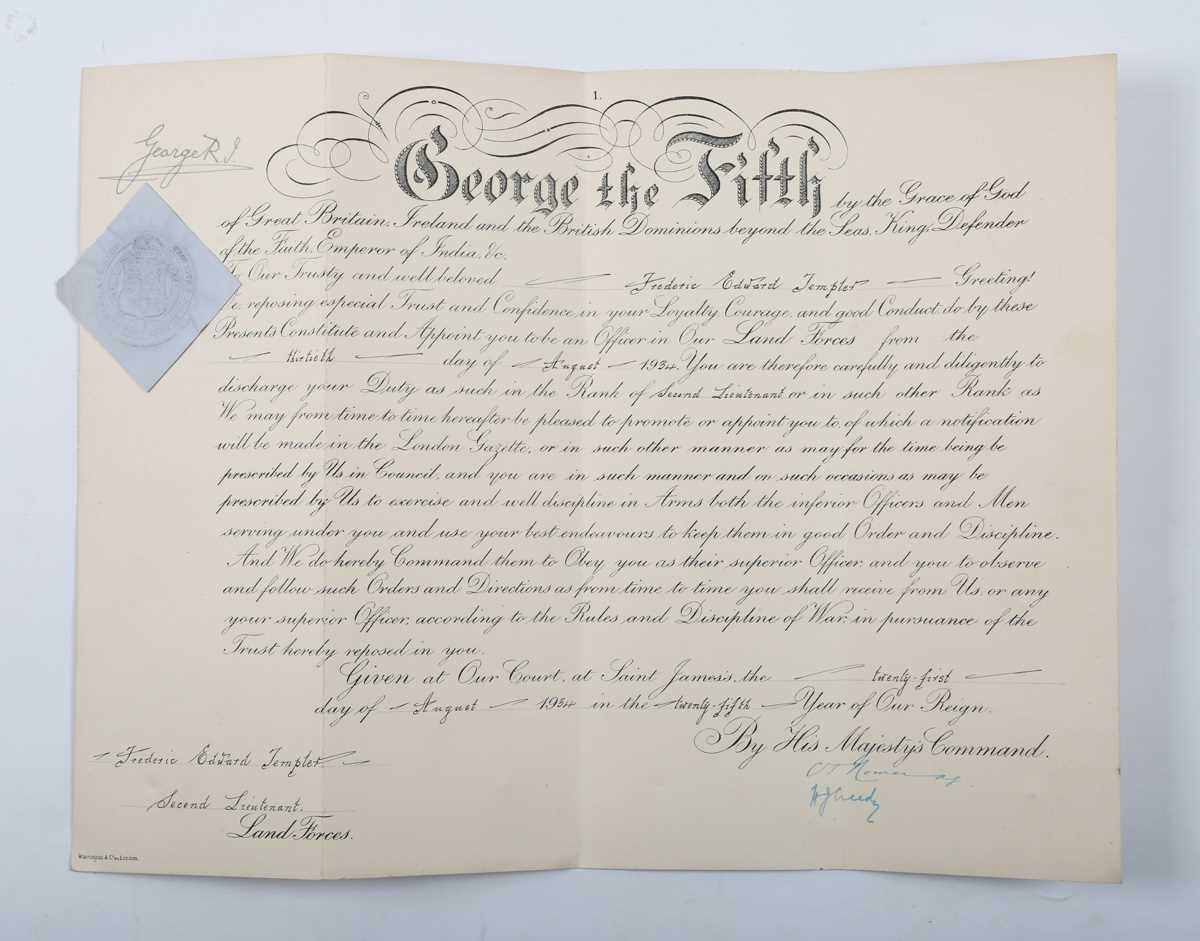 1.
George R.I.
George the Fifth by the Grace of God
of Great Britain, Ireland and the British Dominions beyond the Seas, King, Defender
of the Faith, Emperor of India, &c.
To Our Trusty and well beloved Frederic Edward Templer Greeting!
We, reposing especial Trust and Confidence in your Loyalty, Courage, and good Conduct, do by these
Presents Constitute and Appoint you to be an Officer in Our Land Forces from the
thirtieth day of August 1934. You are therefore carefully and diligently to
discharge your Duty as such in the Rank of Second Lieutenant or in such other Rank as
We may from time to time hereafter be pleased to promote or appoint you to, of which a notification
will be made in the London Gazette, or in such other manner as may for the time being be
prescribed by Us in Council, and you are in such manner and on such occasions as may be
prescribed by Us to exercise and well discipline in Arms both the inferior Officers and Men
serving under you and use your best endeavours to keep them in good Order and Discipline.
And We do hereby Command them to Obey you as their superior Officer, and you to observe
and follow such Orders and Directions as from time to time you shall receive from Us, or any
your superior Officer, according to the Rules and Discipline of War, in pursuance of the
Trust hereby reposed in you.
Given at Our Court, at Saint James's, the twenty-first
day of August 1934 in the twenty-fifth Year of Our Reign.
By His Majesty's Command.
Frederic Edward Templer
H J Creedy
Second Lieutenant.
Land Forces.